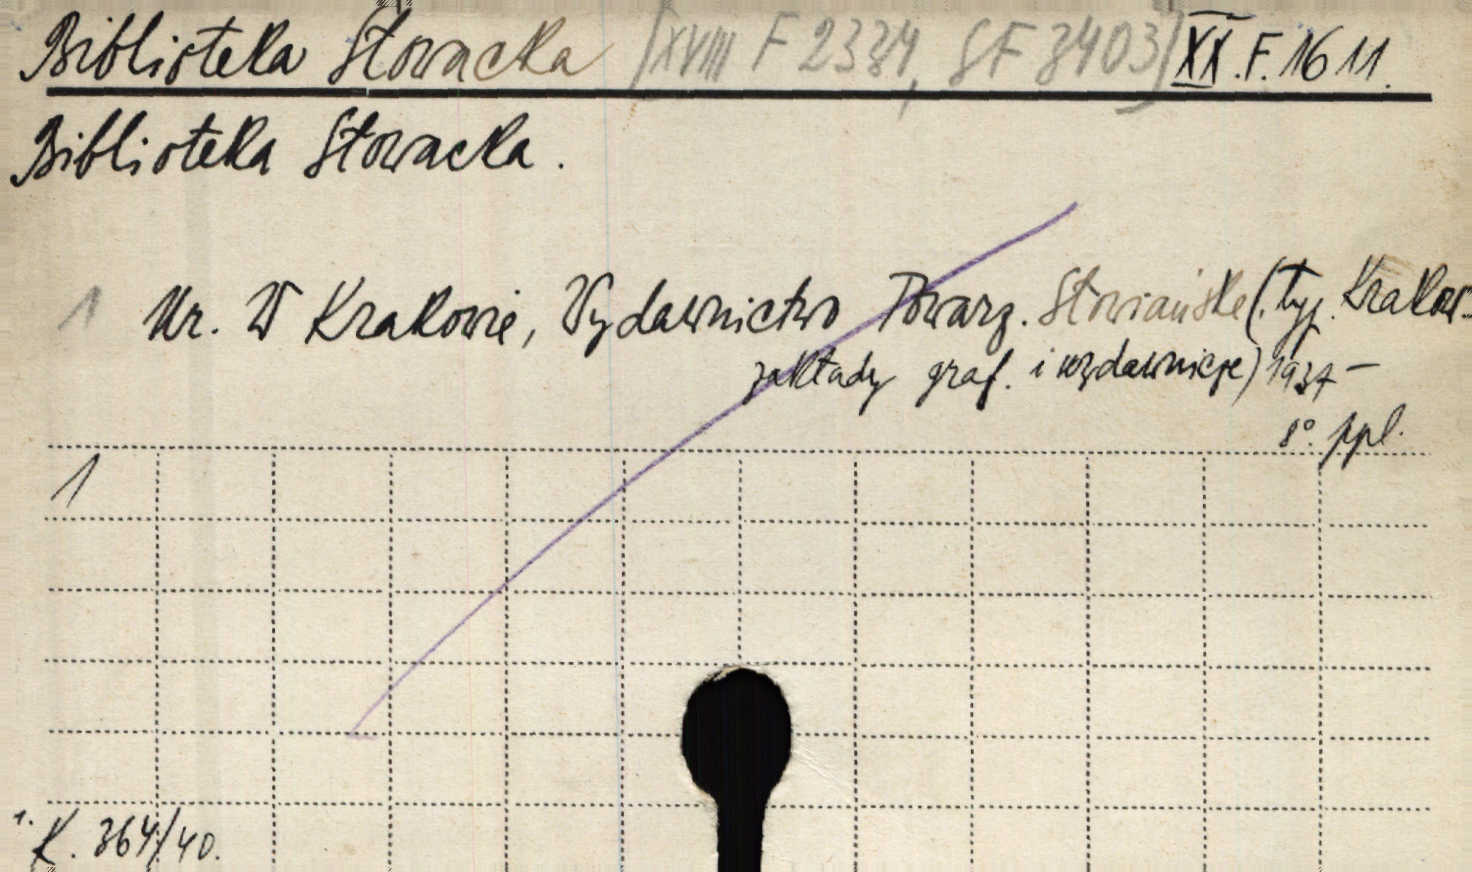 Biblioteka Słowacka [XVIII F 2334, SF 3403] XX.F.1611.
Biblioteka Słowacka.
1 Nr. W Krakowie, Wydawnictwo Towarz. Słowiańskie (typ. Krakow.
zakłady graf. i wydawnicze) 1937 –
8°. ppl.
1
1. K. 364/40.